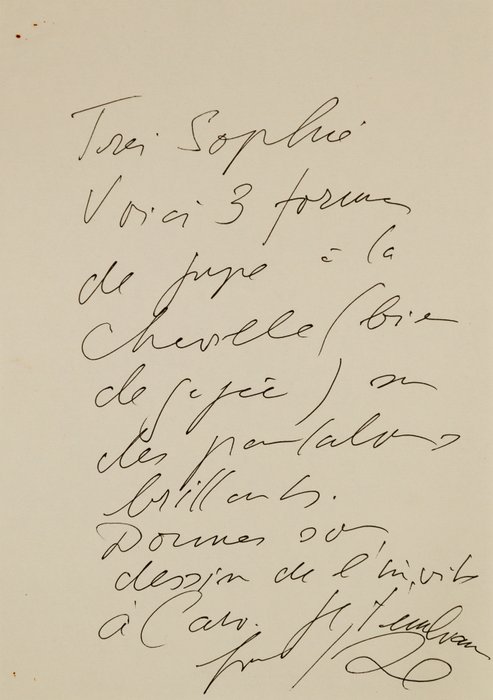 Voici 3 formes
de jupe à la
cheville (bien
dégagée) sur
des pantalons
brillants.
Donnes son
dessin de l'invit
à Caro. Je t'